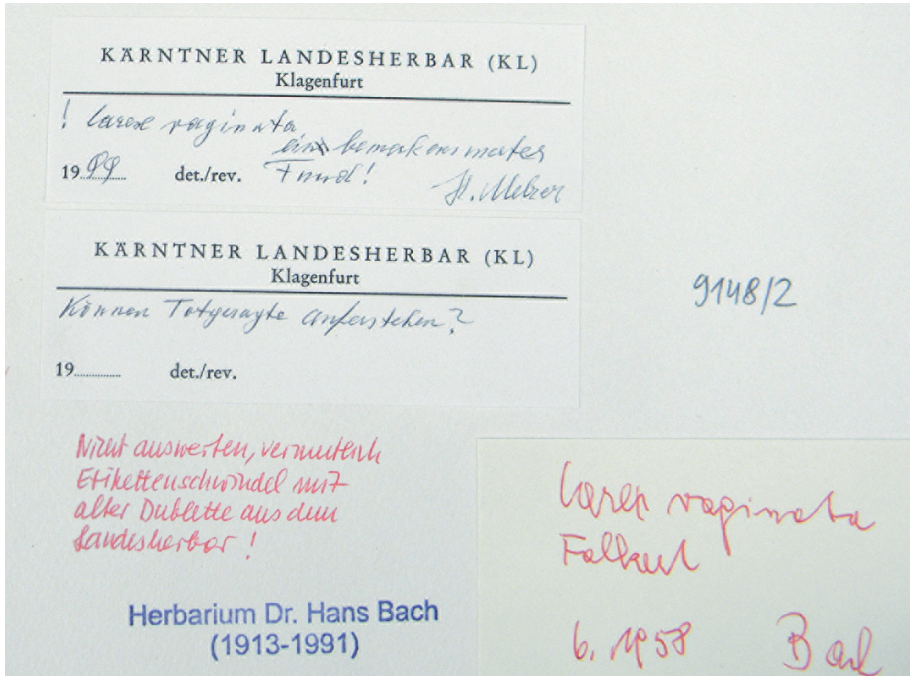 KÄRNTNER LANDESHERBAR (KL)
Klagenfurt
! Carex vaginata
ein bemerkenswerter
1999 det./rev. Fund!
H. Melzer
KÄRNTNER LANDESHERBAR (KL)
Klagenfurt
Können Totgesagte auferstehen?
19 det./rev.
9148/2
Nicht auswerten, vermutlich
Etikettenschwindel mit
alter Dublette aus dem
Landesherbar!
Herbarium Dr. Hans Bach
(1913-1991)
Carex vaginata
Falkert
6. 1958 Bach